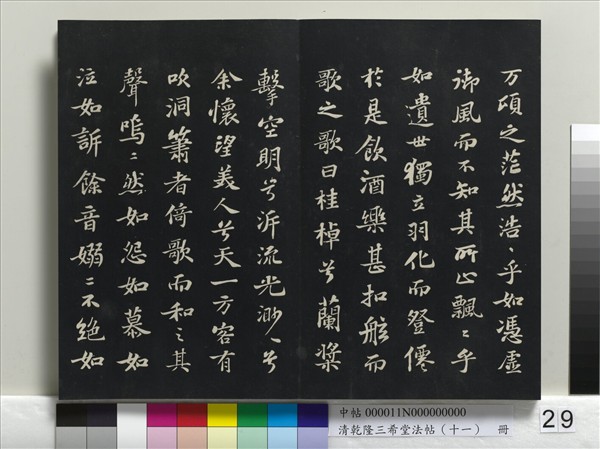 万頃之茫然浩〻乎如馮虛
御風而不知其所止飄〻乎
如遺世獨立羽化而登僊
於是飲酒樂甚扣舷而
歌之歌曰桂棹兮蘭槳
擊空明兮泝流光渺〻兮
余懷望美人兮天一方客有
吹洞簫者倚歌而和之其
聲嗚〻然如怨如慕如
泣如訴餘音嫋〻不絕如
中帖 000011N000000000
清乾隆三希堂法帖（十一） 冊
29